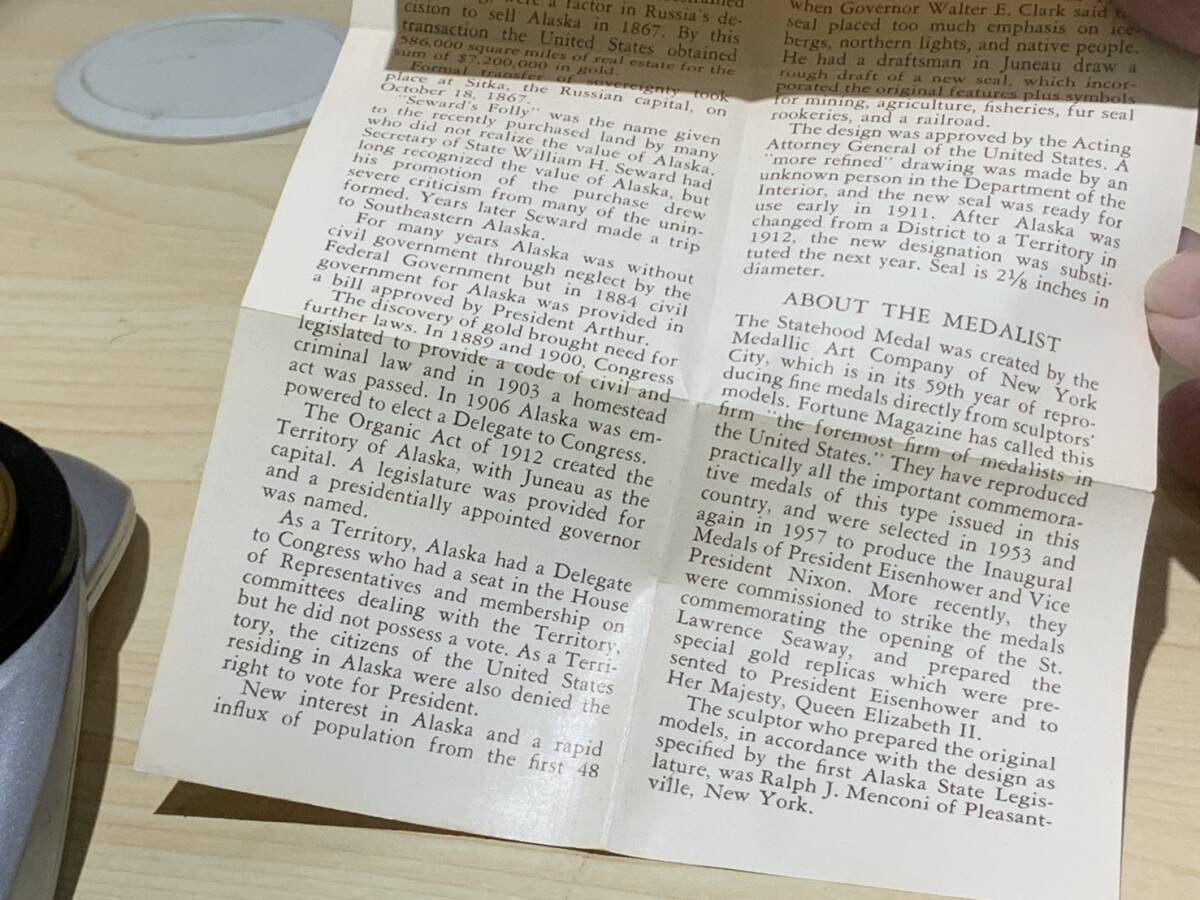 were a factor in Russia's de-
cision to sell Alaska in 1867. By this
transaction the United States obtained
586,000 square miles of real estate for the
sum of $7,200,000 in gold.
Formal transfer of sovereignty took
place at Sitka, the Russian capital, on
October 18, 1867.
"Seward's Folly" was the name given
to the recently purchased land by many
who did not realize the value of Alaska.
Secretary of State William H. Seward had
long recognized the value of Alaska, but
his promotion of the purchase drew
severe criticism from many of the unin-
formed. Years later Seward made a trip
to Southeastern Alaska.
For many years Alaska was without
civil government through neglect by the
Federal Government but in 1884 civil
government for Alaska was provided in
a bill approved by President Arthur.
The discovery of gold brought need for
further laws. In 1889 and 1900, Congress
legislated to provide a code of civil and
criminal law and in 1903 a homestead
act was passed. In 1906 Alaska was em-
powered to elect a Delegate to Congress.
The Organic Act of 1912 created the
Territory of Alaska, with Juneau as the
capital. A legislature was provided for
and a presidentially appointed governor
was named.
As a Territory, Alaska had a Delegate
to Congress who had a seat in the House
of Representatives and membership on
committees dealing with the Territory,
but he did not possess a vote. As a Terri-
tory, the citizens of the United States
residing in Alaska were also denied the
right to vote for President.
New interest in Alaska and a rapid
influx of population from the first 48
when Governor Walter E. Clark said
seal placed too much emphasis on ice-
bergs, northern lights, and native people.
He had a draftsman in Juneau draw a
rough draft of a new seal, which incor-
porated the original features plus symbols
for mining, agriculture, fisheries, fur seal
rookeries, and a railroad.
The design was approved by the Acting
Attorney General of the United States. A
"more refined" drawing was made by an
unknown person in the Department of the
Interior, and the new seal was ready for
use early in 1911. After Alaska was
changed from a District to a Territory in
1912, the new designation was substi-
tuted the next year. Seal is 2⅛ inches in
diameter.
ABOUT THE MEDALIST
The Statehood Medal was created by the
Medallic Art Company of New York
City, which is in its 59th year of repro-
ducing fine medals directly from sculptors'
models. Fortune Magazine has called this
firm "the foremost firm of medalists in
the United States." They have reproduced
practically all the important commemora-
tive medals of this type issued in this
country, and were selected in 1953 and
again in 1957 to produce the Inaugural
Medals of President Eisenhower and Vice
President Nixon. More recently, they
were commissioned to strike the medals
commemorating the opening of the St.
Lawrence Seaway, and prepared the
special gold replicas which were pre-
sented to President Eisenhower and to
Her Majesty, Queen Elizabeth II.
The sculptor who prepared the original
models, in accordance with the design as
specified by the first Alaska State Legis-
lature, was Ralph J. Menconi of Pleasant-
ville, New York.